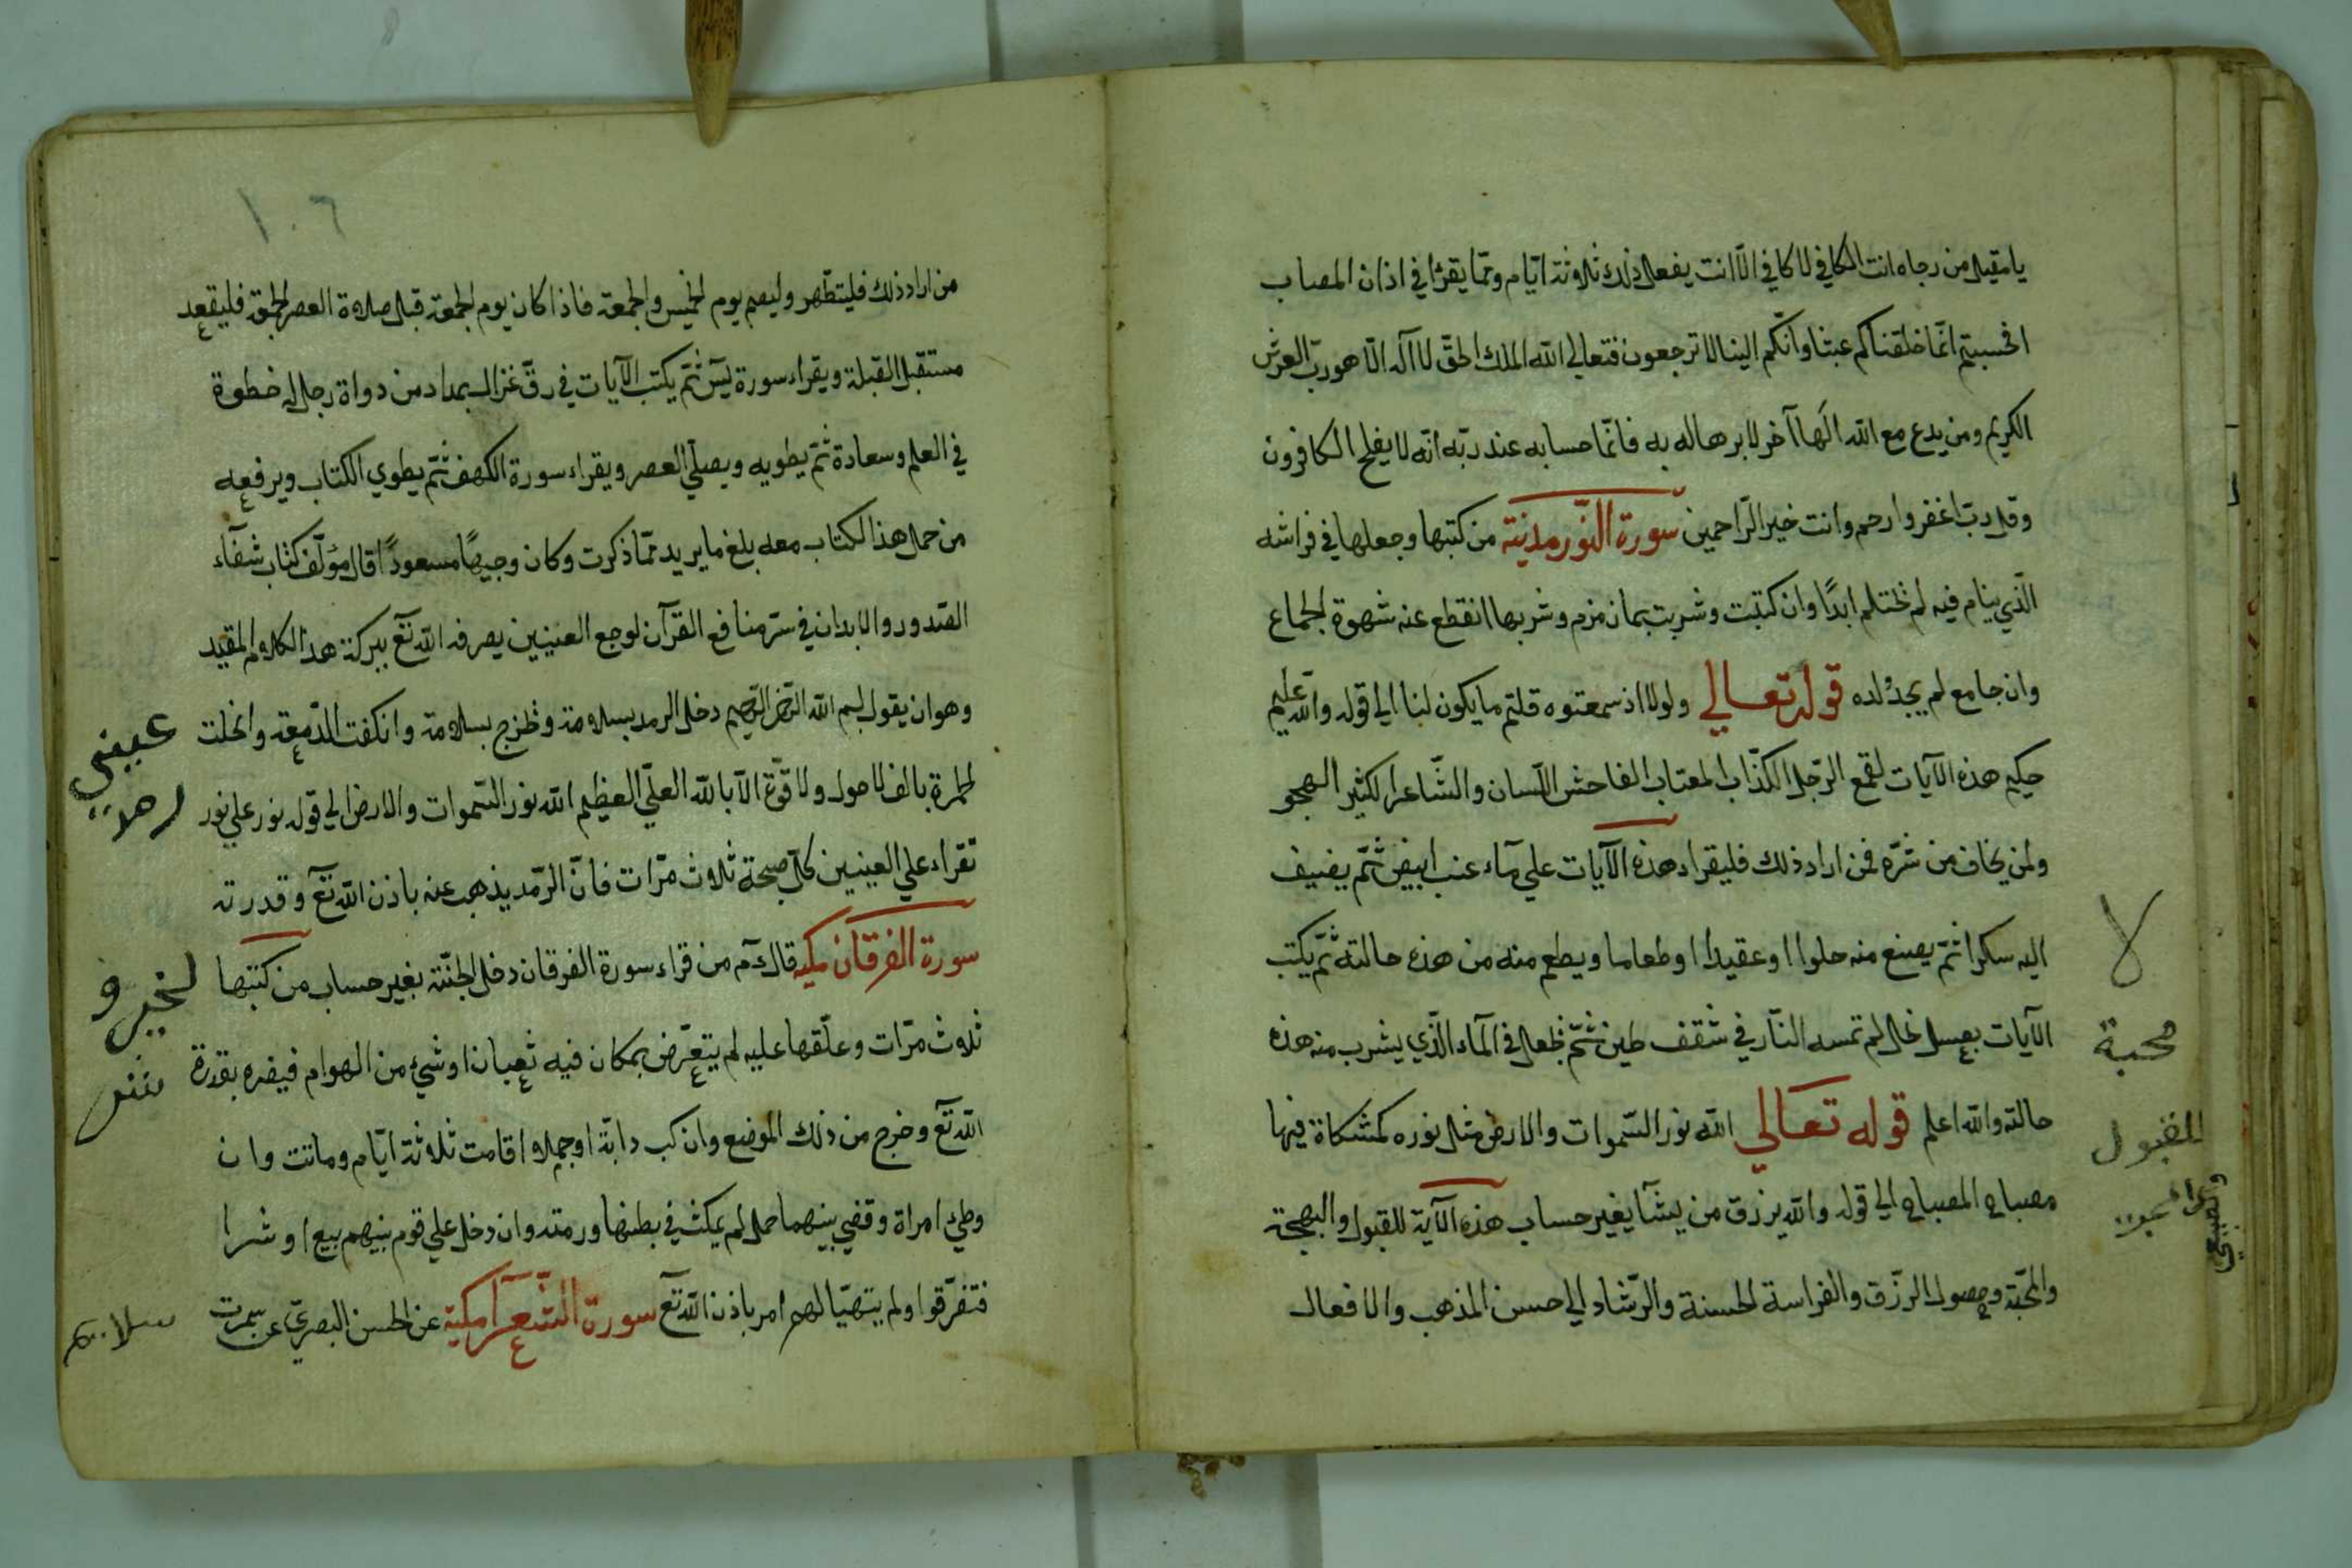 يا مقيل من رجاه انت الكافي لا كافي الّا انت يفعل ذلك ثلاثة ايّام وممّا يقرا في اذان المصاب
افحسبتم انّما خلقناكم عبثا وانّكم الينا لا ترجعون فتعالي الله الملك الحقّ لا اله الّا هو ربّ العرش
الكريم ومن يدع مع الله الها آخر لا برهان له به فانّما حسابه عند ربّه انّه لا يفلح الكافرون
وقل ربّ اغفر وارحم وانت خير الرّاحمين سورة النّور مدنيّة من كتبها وجعلها في فراشه
الّذي ينام فيه لم يحتلم ابدًا وان كتبت وشربت بماء زمزم وشربها انقطع عنه شهوة الجماع
وان جامع لم يجد لده قوله تعالي ولولا اذ سمعتوه قلتم ما يكون لنا الي قوله والله عليم
حكيم هذه الآيات لقمع الرّجل الكذّاب المعتاب الفاحش اللّسان والشّاعر الكثير الهجو
ولمن يخاف من شرّه فمن اراد ذلك فليقراء هذه الآيات علي مآء عنب ابيض ثمّ يضيف
اليه سكرا ثمّ يصنع منه حلوا او عقيدا او طعاما ويطعم منه من هذه حالته ثمّ يكتب
الآيات بعسل نحل لم تمسه النّار في شقف طين ثمّ يجعل في المآء الّذي يشرب منه هذه
حالته والله اعلم قوله تعالي الله نور السّموات والارض مثل نوره كمشكاة فيها
مصباح المصباح الي قوله والله يرزق من يشآ بغير حساب هذه الآية للقبول والبهجة
والمحبّة وحصول الرّزق والفراسة الحسنة والرّشاد الي حسن المذهب والافعال
لا
محبة
للقبول
١٠٦
من اراد ذلك فليتطّهر وليصم يوم الخميس والجمعة فاذا كان يوم الجمعة قبل صلاة العصر فليقعد
مستقبل القبلة ويقراء سورة يس ثمّ يكتب الآيات في رقّ غزال بمداد من دواة رجل له خطوة
في العلم وسعادة ثمّ يطويه ويصلّي العصر ويقراء سورة الكهف ثمّ يطوي الكتاب ويرفعه
من حمل هذا الكتاب معه بلغ ما يريد ممّا ذكرت وكان وجيهًا مسعودًا قال مؤلّف كتاب شفآء
الصّدور والابدان في سرّ منافع القرآن لوجع العينين يصرفه الله تع ببركة هذا الكلام المقيد
وهو ان يقول بسم الله الرّحمن الرّحيم دخل الرمد بسلامة وخرج بسلامة وانكفت الدّمعة وانحلت
الحمرة بالف لا حول ولا قوّة الّا بالله العلّي العظيم الله نور السّموات والارض الي قوله نور علي نور
تقراء علي العينين كلّ صبحة ثلاث مرّات فانّ الرّمد يذهب عنه باذن الله تع وقدرته
سورة الفرقان مكية قال م من قراء سورة الفرقان دخل الجنّة بغير حساب من كتبها
ثلاث مرّات وعلّقها عليه لم يتعرّض بمكان فيه ثعبان او شيء من الهوام فيضره بقدرة
الله تع وخرج من ذلك الموضع وان ركب دابّة او جملا اقامت ثلاثة ايّام وماتت وان
وطي امراة وقضي بينهما حمل لم يمكث في بطنها ورمته وان دخل علي قوم بينهم بيع او شرا
فتفرّقوا ولم يتهيّا لهم امر باذن الله تع سورة الشّعرآ مكية عن الحسن البصريّ عن سمرت
عيني